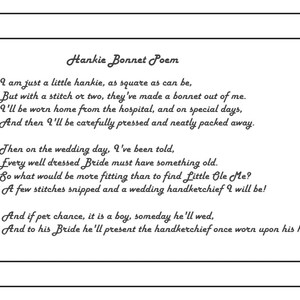 Hankie Bonnet Poem
I am just a little hankie, as square as can be,
But with a stitch or two, they've made a bonnet out of me.
I'll be worn home from the hospital, and on special days,
And then I'll be carefully pressed and neatly packed away.
Then on the wedding day, I've been told,
Every well dressed Bride must have something old.
So what would be more fitting than to find Little Ole Me?
A few stitches snipped and a wedding handkerchief I will be!
And if per chance, it is a boy, someday he'll wed,
And to his Bride he'll present the handkerchief once worn upon his